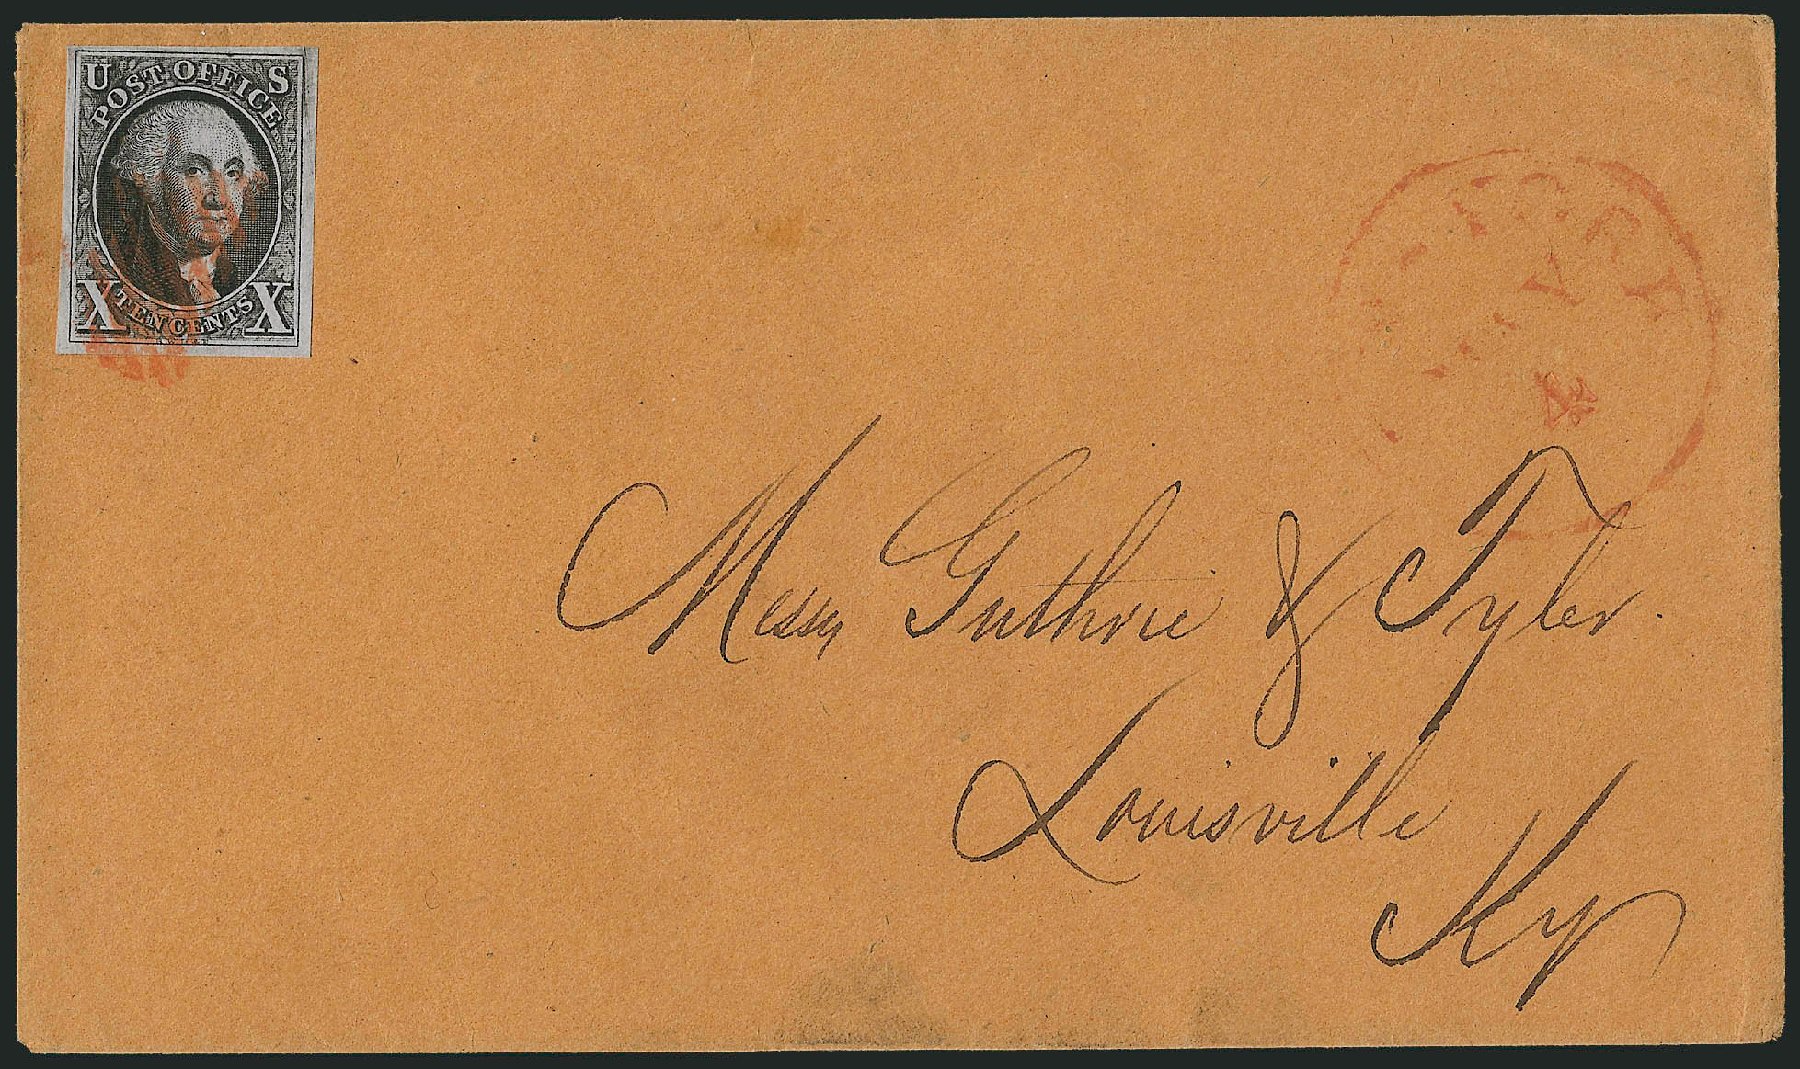 U S
POST OFFICE
X TEN CENTS X
4
Messrs Guthrie & Tyler.
Louisville
Ky